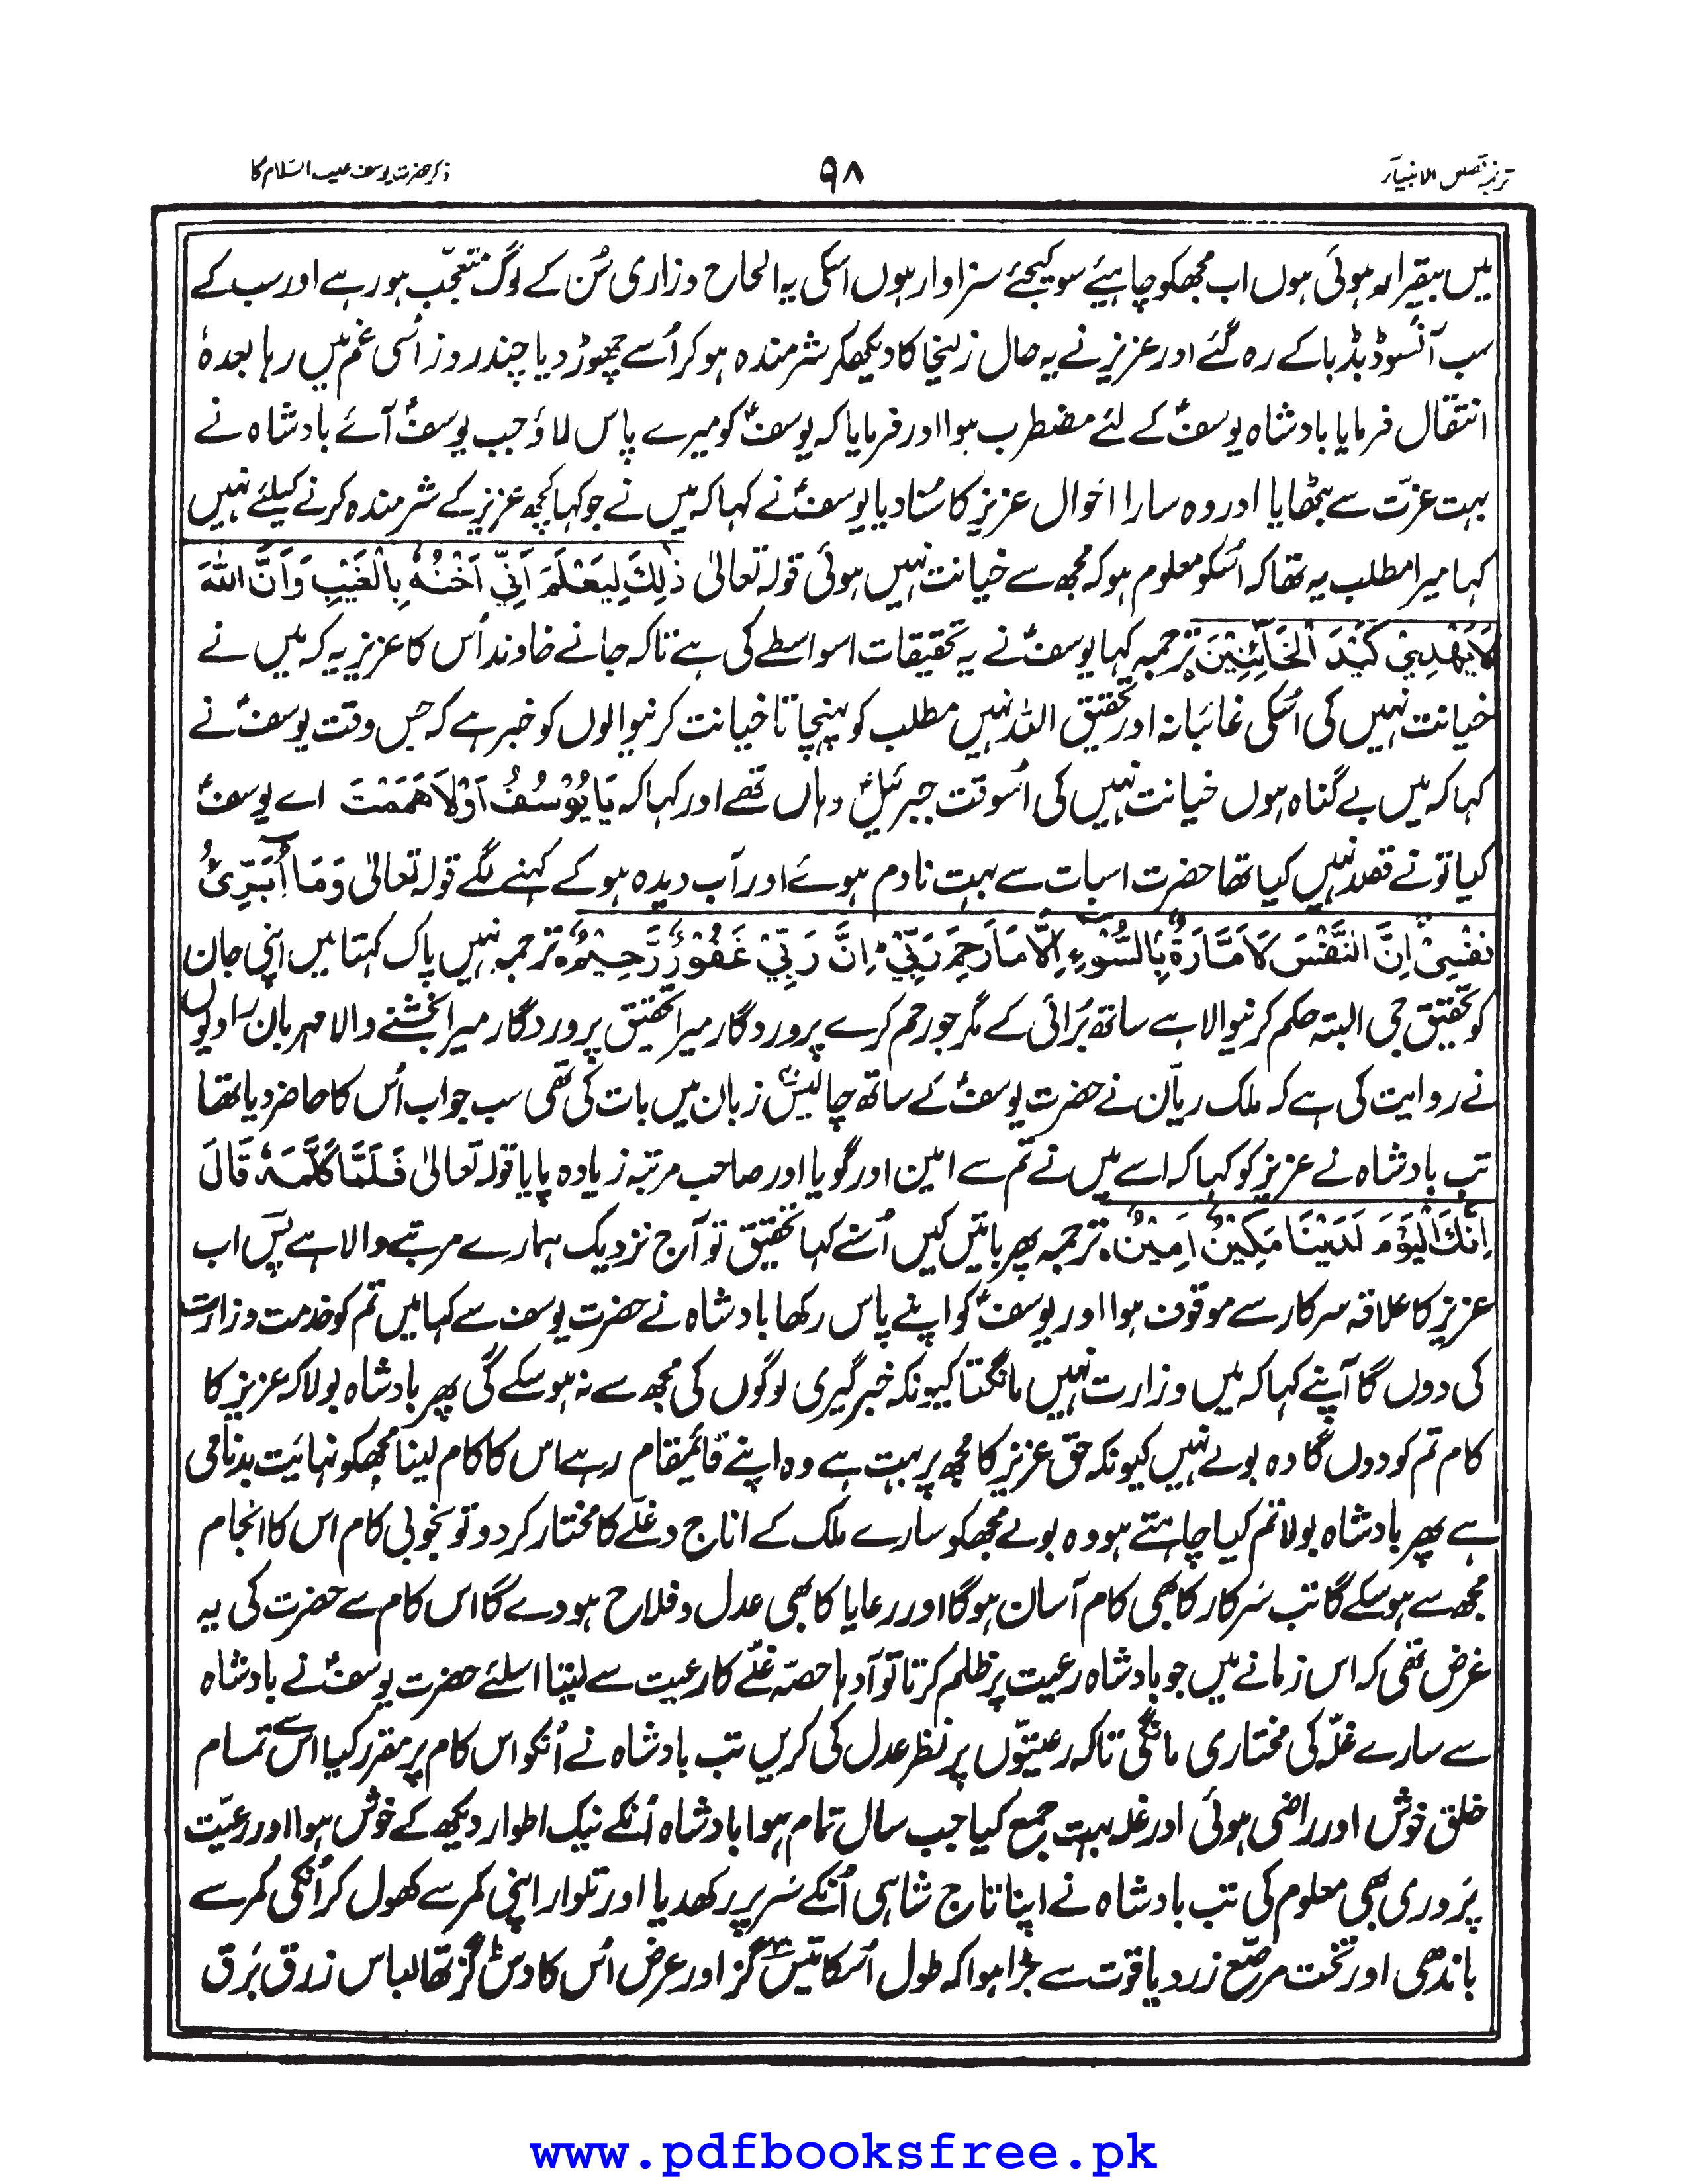 ترجمہ قصص الانبیآر
۹۸
ذکر حضرت یوسف علیہ السّلام کا
میں بیقرار ہوئی ہوں اب مجھکو چاہیئے سو کیجئے سزاوار ہوں اسکی یہ الحاح وزاری سُن کے لوگ متعجّب ہو رہے اور سب کے
سب آنسو ڈبڈبا کے رہ گئے اور عزیز نے یہ حال زلیخا کا دیکھکر شرمندہ ہو کر اُسے چھوڑ دیا چند روز اُسی غم میں رہا بعدہٗ
انتقال فرمایا بادشاہ یوسفؑ کے لئے مضطرب ہوا اور فرمایا کہ یوسفؑ کو میرے پاس لاؤ جب یوسفؑ آئے بادشاہ نے
بہت عزّت سے بٹھایا اور وہ سارا احوال عزیز کا سُنا دیا یوسفؑ نے کہا کہ میں نے جو کہا کچھ عزیز کے شرمندہ کرنے کیلئے نہیں
کہا میرا مطلب یہ تھا کہ اُسکو معلوم ہو کہ مجھ سے خیانت نہیں ہوئی قولہ تعالیٰ ذٰلِكَ لِيَعْلَمَ اَنِّيْ اَخُنْهُ بِالْغَيْبِ وَاَنَّ اللّٰهَ
لَا يَهْدِيْ كَيْدَ الْخَآئِنِيْنَ ترجمہ کہا یوسفؑ نے یہ تحقیقات اسواسطے کی ہے تاکہ جانے خاوند اُس کا عزیز یہ کہ میں نے
خیانت نہیں کی اُسکی غائبانہ اور تحقیق اللہ نہیں مطلب کو پہنچاتا خیانت کرنیوالوں کو خبر ہے کہ جس وقت یوسفؑ نے
کہا کہ میں بے گناہ ہوں خیانت نہیں کی اُسوقت جبرئیلؑ وہاں تھے اور کہا کہ يَا يُوْسُفُ اَوْلَا هَمَمْتَ اے یوسفؑ
کیا تو نے قصد نہیں کیا تھا حضرت اسبات سے بہت نادم ہوئے اور آب دیدہ ہو کے کہنے لگے قولہ تعالیٰ وَمَا اُبَرِّئُ
نَفْسِيْ اِنَّ النَّفْسَ لَاَمَّارَةٌ بِالسُّوْٓءِ اِلَّا مَا رَحِمَ رَبِّيْ اِنَّ رَبِّيْ غَفُوْرٌ رَّحِيْمٌ ترجمہ نہیں پاک کہتا میں اپنی جان
کو تحقیق جی البتہ حکم کرنیوالا ہے ساتھ بُرائی کے مگر جو رحم کرے پروردگار میرا تحقیق پروردگار میرا بخشنے والا مہربان راویوں
نے روایت کی ہے کہ ملک ریّان نے حضرت یوسفؑ کے ساتھ چالیس زبان میں بات کی تھی سب جواب اُس کا حاضر دیا تھا
تب بادشاہ نے عزیز کو کہا کہ اسے میں نے تم سے امین اور گویا اور صاحب مرتبہ زیادہ پایا قولہ تعالیٰ فَلَمَّا كَلَّمَهٗ قَالَ
اِنَّكَ الْيَوْمَ لَدَيْنَا مَكِيْنٌ اَمِيْنٌ ترجمہ پھر باتیں کیں اُسنے کہا تحقیق تو آج نزدیک ہمارے مرتبے والا ہے پس اب
عزیز کا علاقہ سرکار سے موقوف ہوا اور یوسفؑ کو اپنے پاس رکھا بادشاہ نے حضرت یوسف سے کہا میں تم کو خدمت وزارت
کی دوں گا آپنے کہا کہ میں وزارت نہیں مانگتا کیونکہ خبر گیری لوگوں کی مجھ سے نہ ہو سکے گی پھر بادشاہ بولا کہ عزیز کا
کام تم کو دوں گا وہ بولے نہیں کیونکہ حق عزیز کا مجھ پر بہت ہے وہ اپنے قائیمقام رہے اس کا کام لینا مجھکو نہائیت بدنامی
ہے پھر بادشاہ بولا تم کیا چاہتے ہو وہ بولے مجھکو سارے ملک کے اناج و غلّے کا مختار کر دو تو بخوبی کام اس کا انجام
مجھ سے ہو سکے گا تب سَرکار کا بھی کام آسان ہو گا اور رعایا کا بھی عدل و فلاح ہو دے گا اس کام سے حضرت کی یہ
غرض تھی کہ اس زمانے میں جو بادشاہ رعیت پر ظلم کرتا تو آدہا حصّہ غلّے کا رعیت سے لیتا اسلئے حضرت یوسفؑ نے بادشاہ
سے سارے غلّہ کی مختاری مانگی تاکہ رعیتّوں پر نظر عدل کی کریں تب بادشاہ نے اُنکو اس کام پر مقرر کیا اس سے تمام
خلق خوش اور راضی ہوئی اور غلہ بہت جمع کیا جب سال تمام ہوا بادشاہ اُنکے نیک اطوار دیکھ کے خوش ہوا اور رعیّت
پَروری بھی معلوم کی تب بادشاہ نے اپنا تاج شاہی اُنکے سَر پر رکھدیا اور تلوار اپنی کمر سے کھول کر اُنکی کمر سے
باندھی اور تخت مرصّع زر د یاقوت سے جڑا ہوا کہ طول اُسکا تیس گز اور عرض اُس کا دس گز تھا لباس زرق بَرق
www.pdfbooksfree.pk